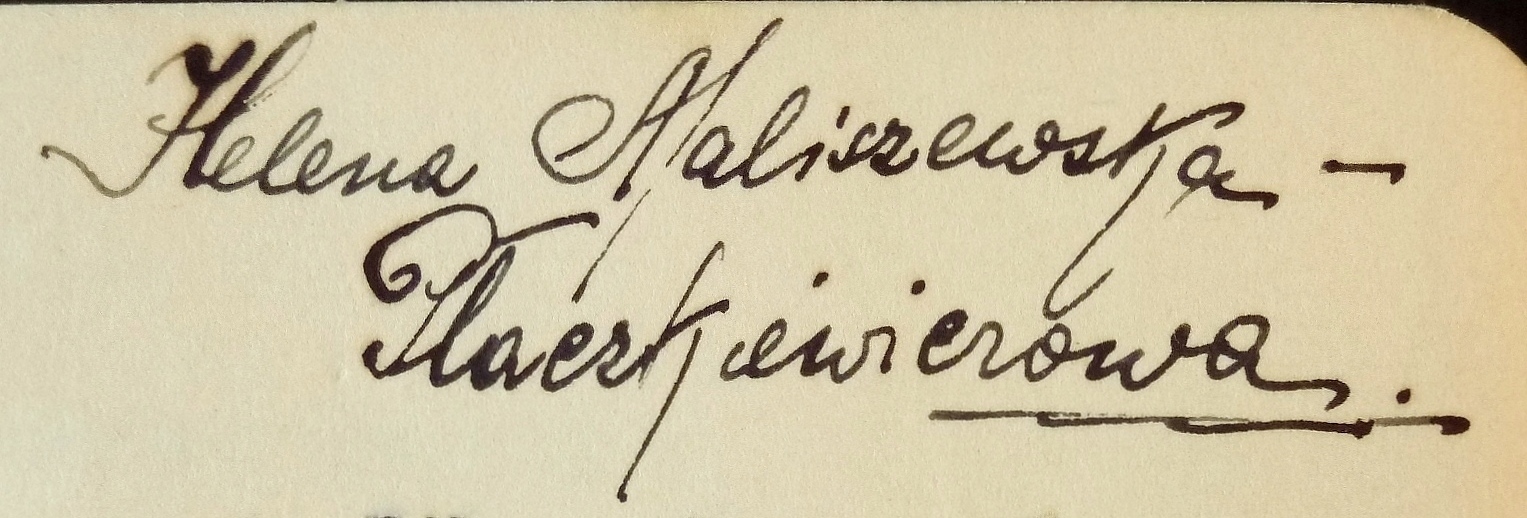 Helena Maliszewska -
Płaczkiewiczowa.